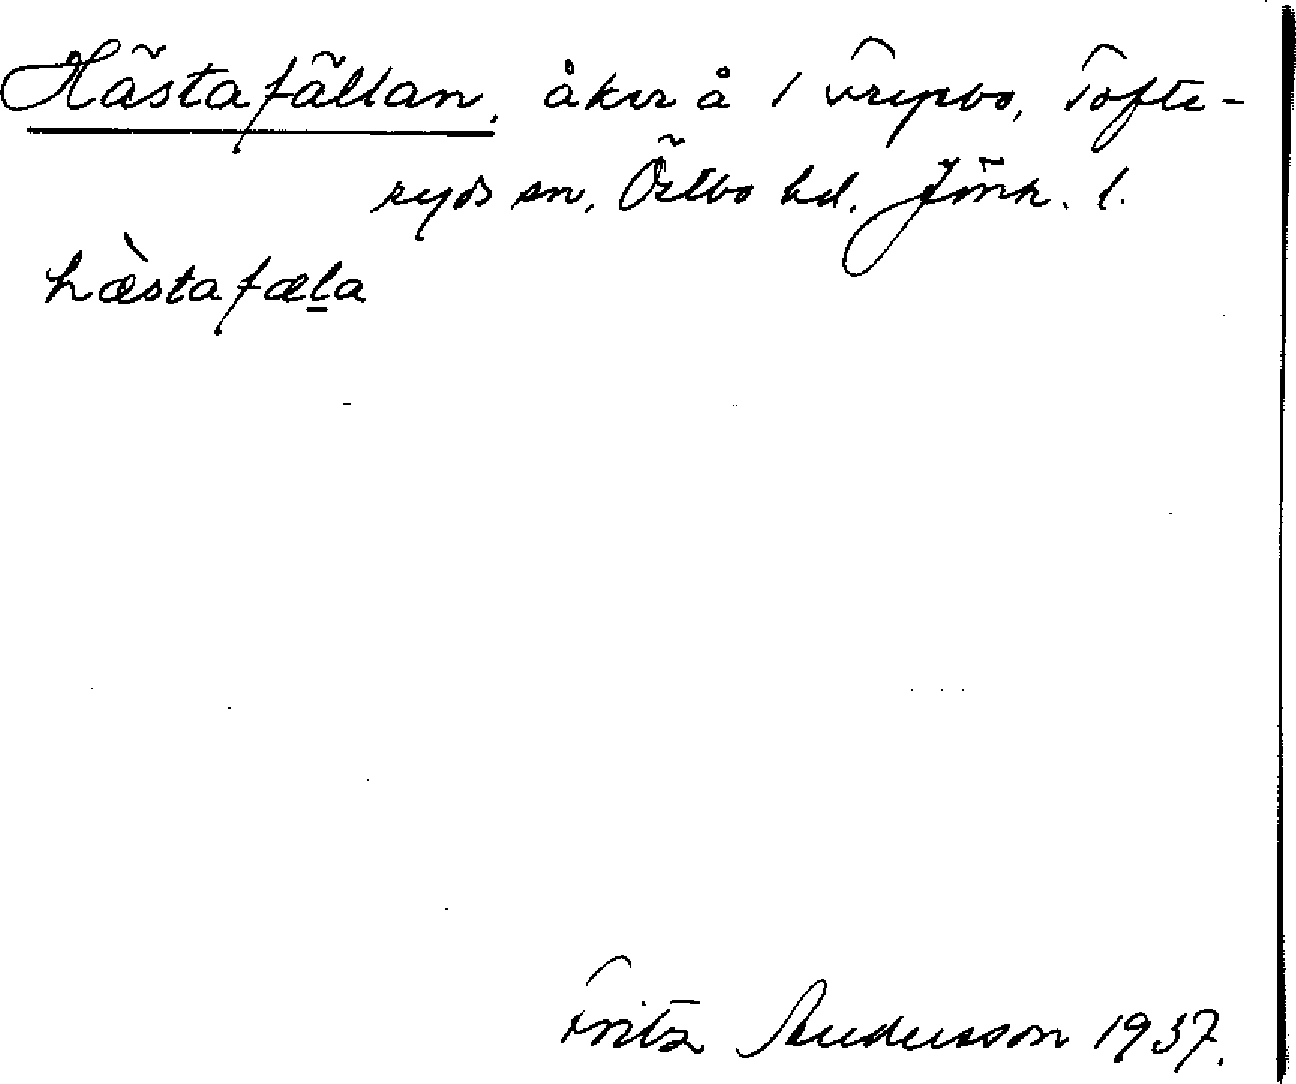 Hästafällan, åker å 1 Frypbo, Tofte-
ryds sn, Östbo hd. Jönk. l.
hæ̀stafæḻa
Fritz Andersson 1937.